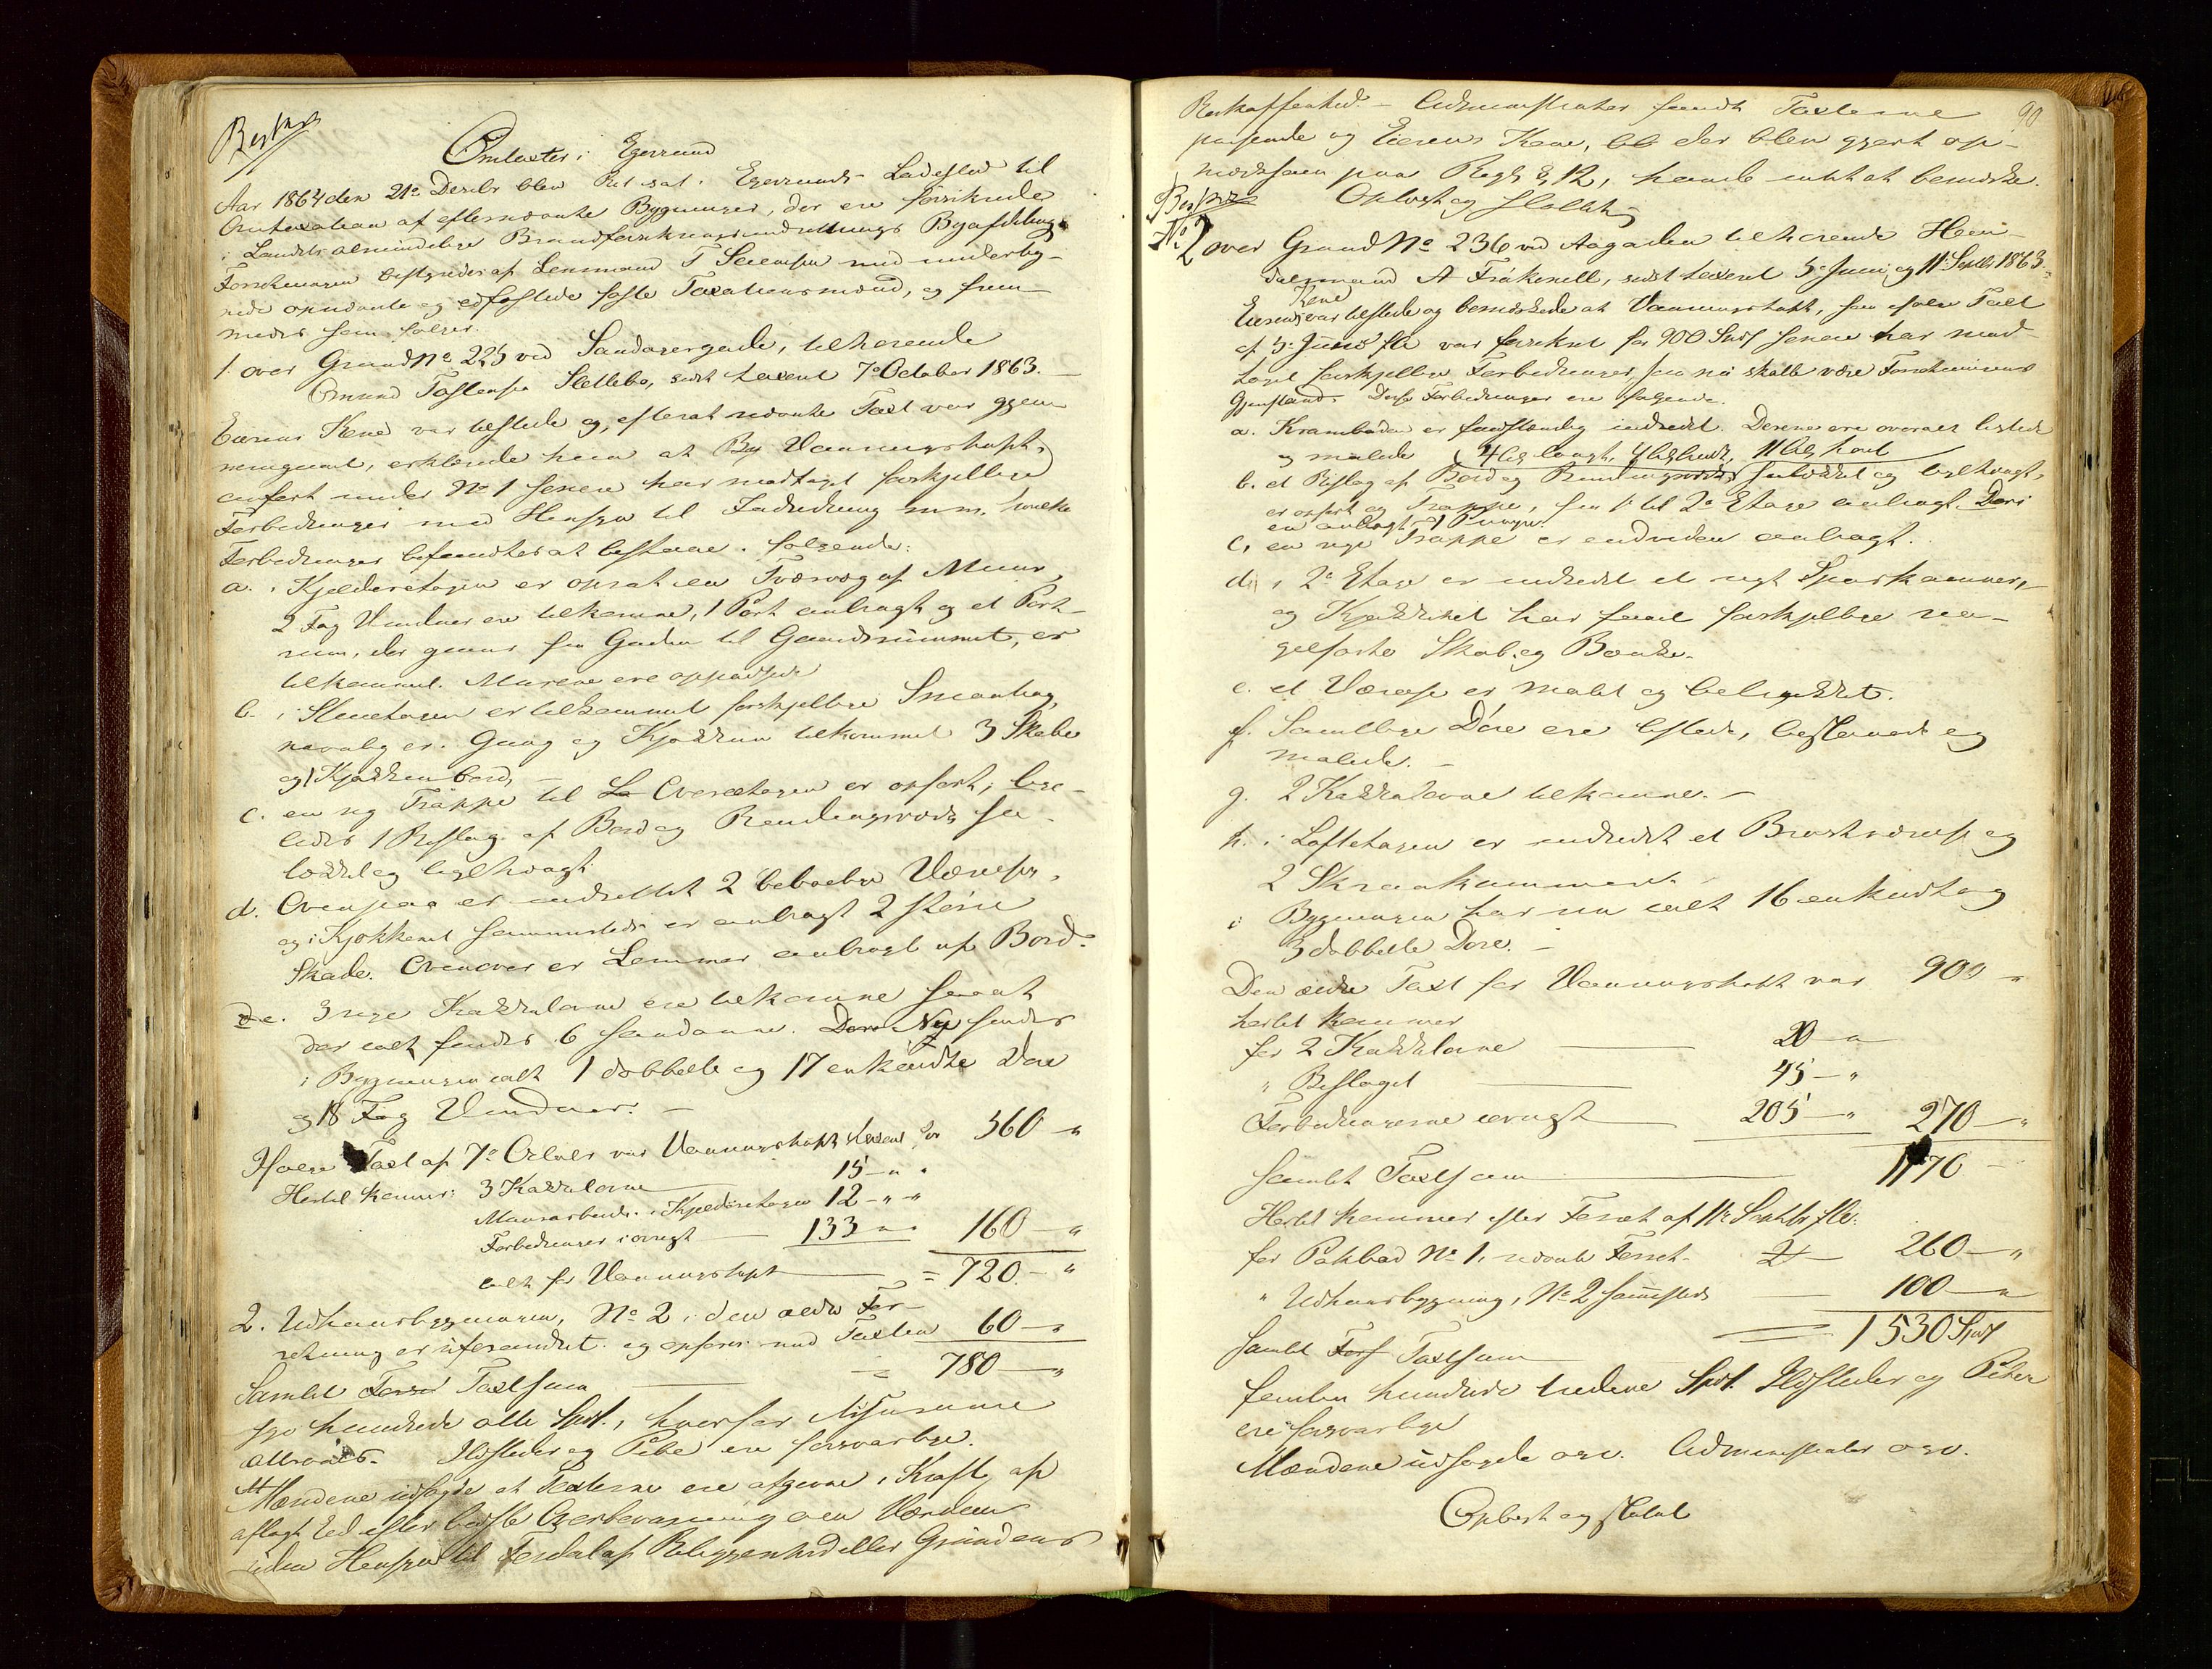 Omtaxter i Egersund
Aar 1864 den 21de Decbr blev Ret sat i Egersunds Ladested til
Omtaxation af efternævnte Bygninger, der ere forsikrede
i Landets almindelige Brandforsikringsindretnings Byafdeling.
Forretningen bestyredes af Lensmand T Svensen med underteg-
nede opnævnte og edfæstede faste Taxationsmænd, og frem-
medes som følger.
1. over Grund No 225 ved Sandagergade, tilhørende
Omund Tostensen Sletlebø, sidst taxeret 7de October 1863.
Eierens Kone var tilstede og, efterat nævnte Taxt var gjen-
nemgaaet, erklærede hun at By Vaaningshuset,
anført under No 1 senere har modtaget forskjellige
Forbedringer med Hensyn til Indredning m.m. hvilke
Forbedringer befandtes at bestaae i følgende:
a. i Kjelderetagen er opsat en Tværvæg af Muur,
2 Fag Vinduer ere tilkomne, 1 Port anbragt og et Port-
rum, der gaaer fra Gaden til Gaardsrummet, er
tilkommet. Murene ere oppudsede
b. i Stueetagen er tilkommet forskjellige Smaating,
navnlig er i Gang og Kjøkken tilkommet 3 Skabe
og 1 Kjøkkenbord,
c. en ny Trappe til Overetagen er opført, lige-
ledes 1 Bislag af Bord og Bindingsværk
lukket og teglhængt
d. Ovenpaa er indrettet 2 beboelige Værelser,
og i Kjøkkenet sammesteds er anbragt 2 større
Skabe. Ovenover er Lemmer anbragt af Bord.
e. 3 nye Kakkelovne ere tilkomne saaat
der ialt findes 6 saadanne. Døre Nu findes
i Bygningen ialt 1 dobbelt og 17 enkelte Døre
og 18 Fag Vinduer.
Ifølge Taxt af 7de Octobr var Vaaningshuset taxeret for 560 "
Hertil kommer: 3 Kakkelovne 15 " "
Muurarbeide i Kjelderetagen 12 " "
Forbedringer iøvrigt 133 " " 160 "
ialt for Vaaningshuset = 720 "
2. Udhuusbygningen, No 2 i den ældre For-
retning er uforandret og opføres med Taxten 60 "
Samlet Taxtsum = 780 "
syv hundrede otte Spdl.,
Ildsteder og Pibe ere forsvarlige.
Mændene udsagde at Taxterne ere afgivne i Kraft af
aflagt Eed efter bedste Overbeviisning om Værdien
uden Hensyn til Fordel af Beliggenhed eller Grundens
90
Beskaffenhed. Administrator fandt Taxterne
passende og Eierens Kone, der blev gjort op-
mærksom paa Regl. § 12, havde intet at bemærke.
Oplæst og sluttet
No 2 over Grund No 236 ved Aagaden tilhørende Han-
delsmand A Frøkenell, sidst taxeret 5te Juni og 11te Septbr 1863.
Eierens Kone var tilstede og bemærkede at Vaaningshuset, som ifølge Taxt
af 5te Juni f.A. var forsikret for 900 Spdl senere har mod-
taget forskjellige Forbedringer, som nu skulle være Forretningens
Gjenstand. Disse Forbedringer ere følgende.
a. Kramboden er fuldstændig indredet. Dørene ere overalt listede
og malede
b. et Bislag af Bord og Bindingsværk, lukket og teglhængt,
er opført og Trappe, fra 1. til 2. Etage anbragt. Deri
er anbragt 1 Pumpe.
c. en nye Trappe er endvidere anbragt.
d. i 2. Etage er indredet et nyt Spiskammer,
og Kjøkkenet har faaet forskjellige na-
gelfaste Skab og Bænke.
e. et Værelse er malet og betrukket.
f. Samtlige Døre ere listede, beslaaede og
malede.
g. 2 Kakkelovne tilkomne.
h. i Loftetagen er indredet et Værelse og
2 Skraakammere.
i Bygningen har nu ialt 16 enkelte og
3 dobbelte Døre.
Den ældre Taxt for Vaaningshuset var 900 "
hertil kommer
for 2 Kakkelovne 20 "
" Bislaget 45 "
Forbedringerne iøvrigt 205 " 270 "
Samlet Taxtsum 1170
Hertil kommer efter Forret. af 11te Septbr f.A.
for Pakbod No 1, nævnte Forret. 260 "
" Udhuusbygning, No 2 sammesteds 100 "
Samlet Taxtsum = 1530 Spdl
femten hundrede tredive Spdl. Ildsteder og Piber
ere forsvarlige
Mændene udsagde osv. Administrator osv.
Oplæst og sluttet